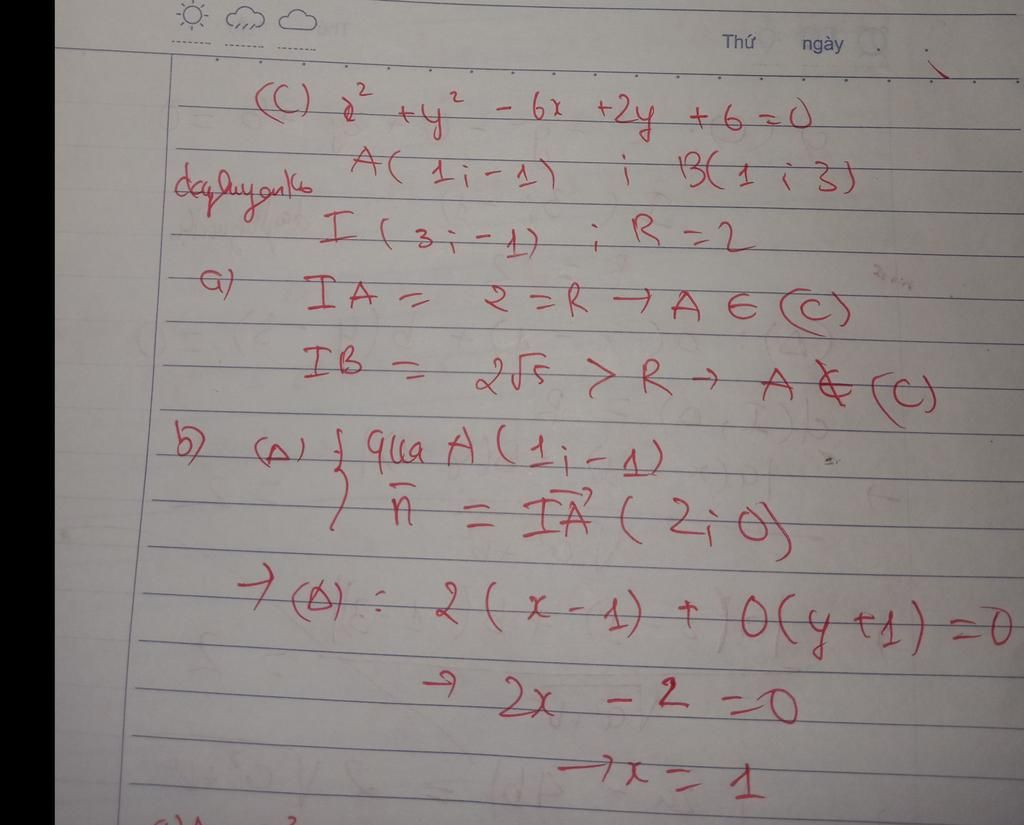 Thứ ngày
(C) x² + y² - 6x + 2y + 6 = 0
A(1; -1) ; B(1; 3)
I (3; -1) ; R = 2
a) IA = 2 = R → A ∈ (C)
IB = 2√5 > R → A ∉ (C)
b) (Δ) { qua A(1; -1)
n̄ = IA⃗ (2; 0)
→ (Δ) : 2(x - 1) + 0(y + 1) = 0
→ 2x - 2 = 0
→ x = 1